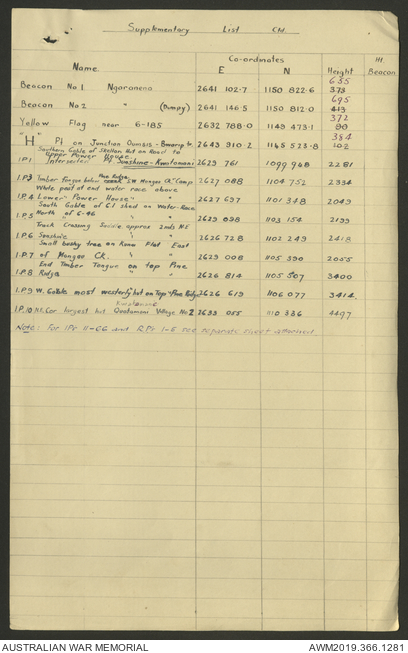 Supplementary List Ctd.
Co-ordinates Ht
Name E N Height Beacon
635
Beacon No 1. Ngoroneno 2641 102.7 1150 822.6 373
695
Beacon No 2 " (Dumpy) 2641 146.5 1150 812.0 413
372
Yellow Flag near 6-185 2632 788.0 1149 473.1 90
384
"H" Pl on Junction 2643 910.2 1145 523.8 102
Southern Gable of Skelton Hut on Road to
upper Power House.
I.P.1 Intersected Sunshine-Kwatomani 2629 761 1099 948 2281
I.P.3 Timber Tongue below Pine Ridge S.W. Mongae Ck. Camp 2627 088 1104 752 2334
White post at end water race above
I.P.4 Lower Power House " 2627 697 1101 348 2049
South Gable of C.I shed on Water-Race
I.P.5 North of 6-46 " " 2629 098 1103 154 2199
Truck Crossing Saddle approx 2mls NE
I.P.6 Sunshine " " 2626 728 1102 249 2418
Small bushy tree on Kunai Flat East
I.P.7 of Mongae Ck. " " 2629 008 1105 590 2055
End Timber Tongue on top Pine
I.P.8 Ridge " " 2626 814 1105 507 3400
I.P.9 W. Gable most westerly hut on Top "Pine Ridge 2626 619 1106 077 3414
Kwatomane
I.P.10 N.E. Cor largest hut Quatomani Village No 2 2633 055 1110 336 4497
Note: For IPs 11-66 and R.Ps 1-5 see separate sheet attached.
AUSTRALIAN WAR MEMORIAL AWM2019.366.1281